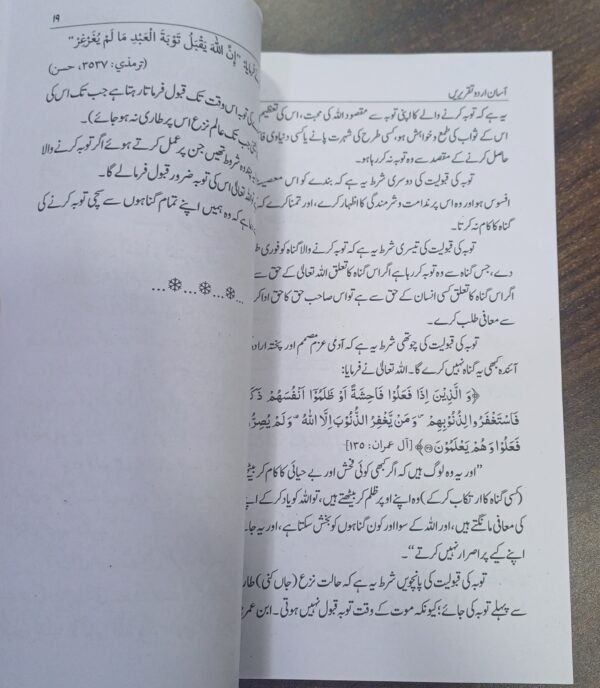 آسان اردو تقریریں
یہ ہے کہ توبہ کرنے والے کا اپنی توبہ سے مقصود اللہ کی محبت، اس کی تعظیم
اس کے ثواب کی طمع و خواہش ہو، کسی طرح کی شہرت پانے یا کسی دنیاوی
حاصل کرنے کے مقصد سے وہ توبہ نہ کر رہا ہو۔
توبہ کی قبولیت کی دوسری شرط یہ ہے کہ بندے کو اس
افسوس ہو اور وہ اس پر ندامت و شرمندگی کا اظہار کرے، اور تمنا کرے کہ
گناہ کا کام نہ کرتا۔
توبہ کی قبولیت کی تیسری شرط یہ ہے کہ توبہ کرنے والا گناہ کو فوری
دے، جس گناہ سے وہ توبہ کر رہا ہے اگر اس گناہ کا تعلق اللہ تعالی کے حق سے
اگر اس گناہ کا تعلق کسی انسان کے حق سے ہے تو اس صاحب حق کا حق ادا کر
سے معافی طلب کرے۔
توبہ کی قبولیت کی چوتھی شرط یہ ہے کہ آدمی عزم مصمم اور پختہ
آئندہ کبھی یہ گناہ نہیں کرے گا۔ اللہ تعالی نے فرمایا:
﴿وَ الَّذِيْنَ اِذَا فَعَلُوْا فَاحِشَةً اَوْ ظَلَمُوْۤا اَنْفُسَهُمْ
فَاسْتَغْفَرُوْا لِذُنُوْبِهِمْ ۪ وَ مَنْ يَّغْفِرُ الذُّنُوْبَ اِلَّا اللهُ ۪ وَ لَمْ
فَعَلُوْا وَ هُمْ يَعْلَمُوْنَ﴾ [آل عمران: ۱۳۵]
”اور یہ وہ لوگ ہیں کہ اگر کبھی کوئی فحش اور بے حیائی کا کام کر
(کسی گناہ کا ارتکاب کر کے) وہ اپنے اوپر ظلم کر بیٹھتے ہیں، تو اللہ کو یاد کر کے اپنے
کی معافی مانگتے ہیں، اور اللہ کے سوا اور کون گناہوں کو بخش سکتا ہے، اور یہ
اپنے کیے پر اصرار نہیں کرتے“۔
توبہ کی قبولیت کی پانچویں شرط یہ ہے کہ حالت نزع (جاں کنی)
سے پہلے توبہ کی جائے؛ کیونکہ موت کے وقت توبہ قبول نہیں ہوتی۔ ابن عمر
۱۹
"إِنَّ اللهَ يَقْبَلُ تَوْبَةَ الْعَبْدِ مَا لَمْ يُغَرْغِرْ"
(ترمذی: ۳۵۳۷، حسن)
توبہ اس وقت تک قبول فرماتا رہتا ہے جب تک اس کی
جب تک عالم نزع اس پر طاری نہ ہو جائے)۔
شروط تھیں جن پر عمل کرتے ہوئے اگر توبہ کرنے والا
اللہ تعالی اس کی توبہ ضرور قبول فرمالے گا۔
ہے کہ وہ ہمیں اپنے تمام گناہوں سے سچی توبہ کرنے کی
...❄...❄...❄...